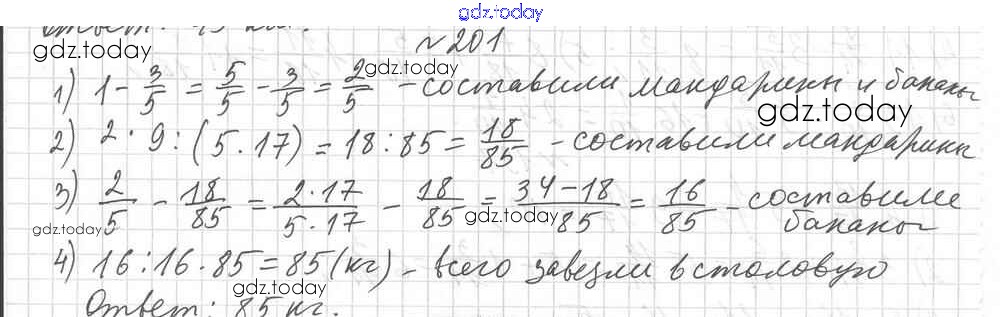 gdz.today
Ответ: 45
№ 201
gdz.today
gdz.today
1) 1 - 3/5 = 5/5 - 3/5 = 2/5 - составили мандарины и бананы
gdz.today
2) 2 · 9 : (5 · 17) = 18 : 85 = 18/85 - составили мандарины
3) 2/5 - 18/85 = 2·17/5·17 - 18/85 = 34-18/85 = 16/85 - составили
бананы
gdz.today
gdz.today
4) 16 : 16 · 85 = 85 (кг) - всего завезли в столовую
gdz.today
Ответ: 85 кг.